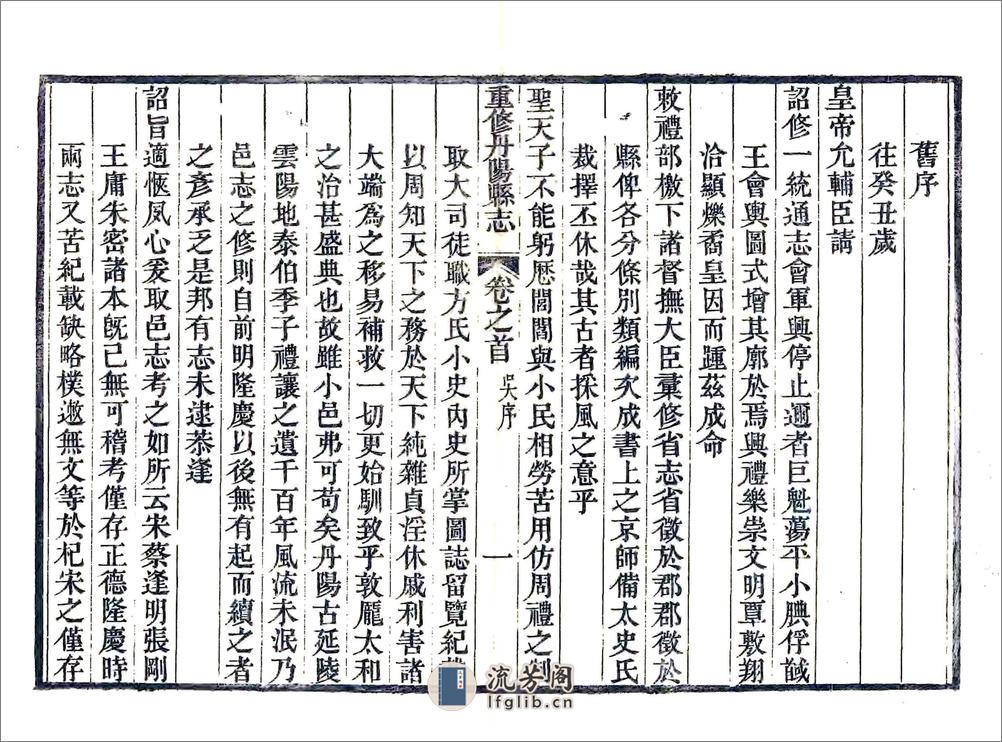 舊序
往癸丑歲
皇帝允輔臣請
詔修一統通志會軍興停止邇者巨魁蕩平小腆俘馘
王會輿圖式增其廓於焉興禮樂崇文明覃敷翔
洽顯爍矞皇因而踵茲成命
敕禮部檄下諸督撫大臣彙修省志省徵於郡郡徵於
縣俾各分條別類編次成書上之京師備太史氏
裁擇丕休哉其古者採風之意乎
聖天子不能躬歴閭閻與小民相勞苦用仿周禮之制
重修丹陽縣志
卷之首
序
一
取大司徒職方氏小史內史所掌圖誌留覽紀
以周知天下之務於天下純雜貞淫休戚利害諸
大端爲之移易補救一切更始馴致乎敦龐太和
之治甚盛典也故雖小邑弗可苟矣丹陽古延陵
雲陽地泰伯季子禮讓之遺千百年風流未泯乃
邑志之修則自前明隆慶以後無有起而續之者
之彥承乏是邦有志未逮恭逢
詔旨適愜夙心爰取邑志考之如所云宋蔡逢明張剛
王庸朱密諸本旣已無可稽考僅存正德隆慶時
兩志又苦紀載缺略樸遬無文等於杞宋之僅存
流芳阁
lfglib.cn